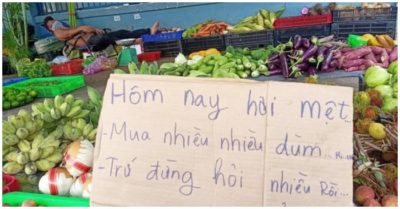 Hôm nay hơi mệt
- Mua nhiều nhiều dùm...
- Trứ đừng hỏi nhiều Rồi...